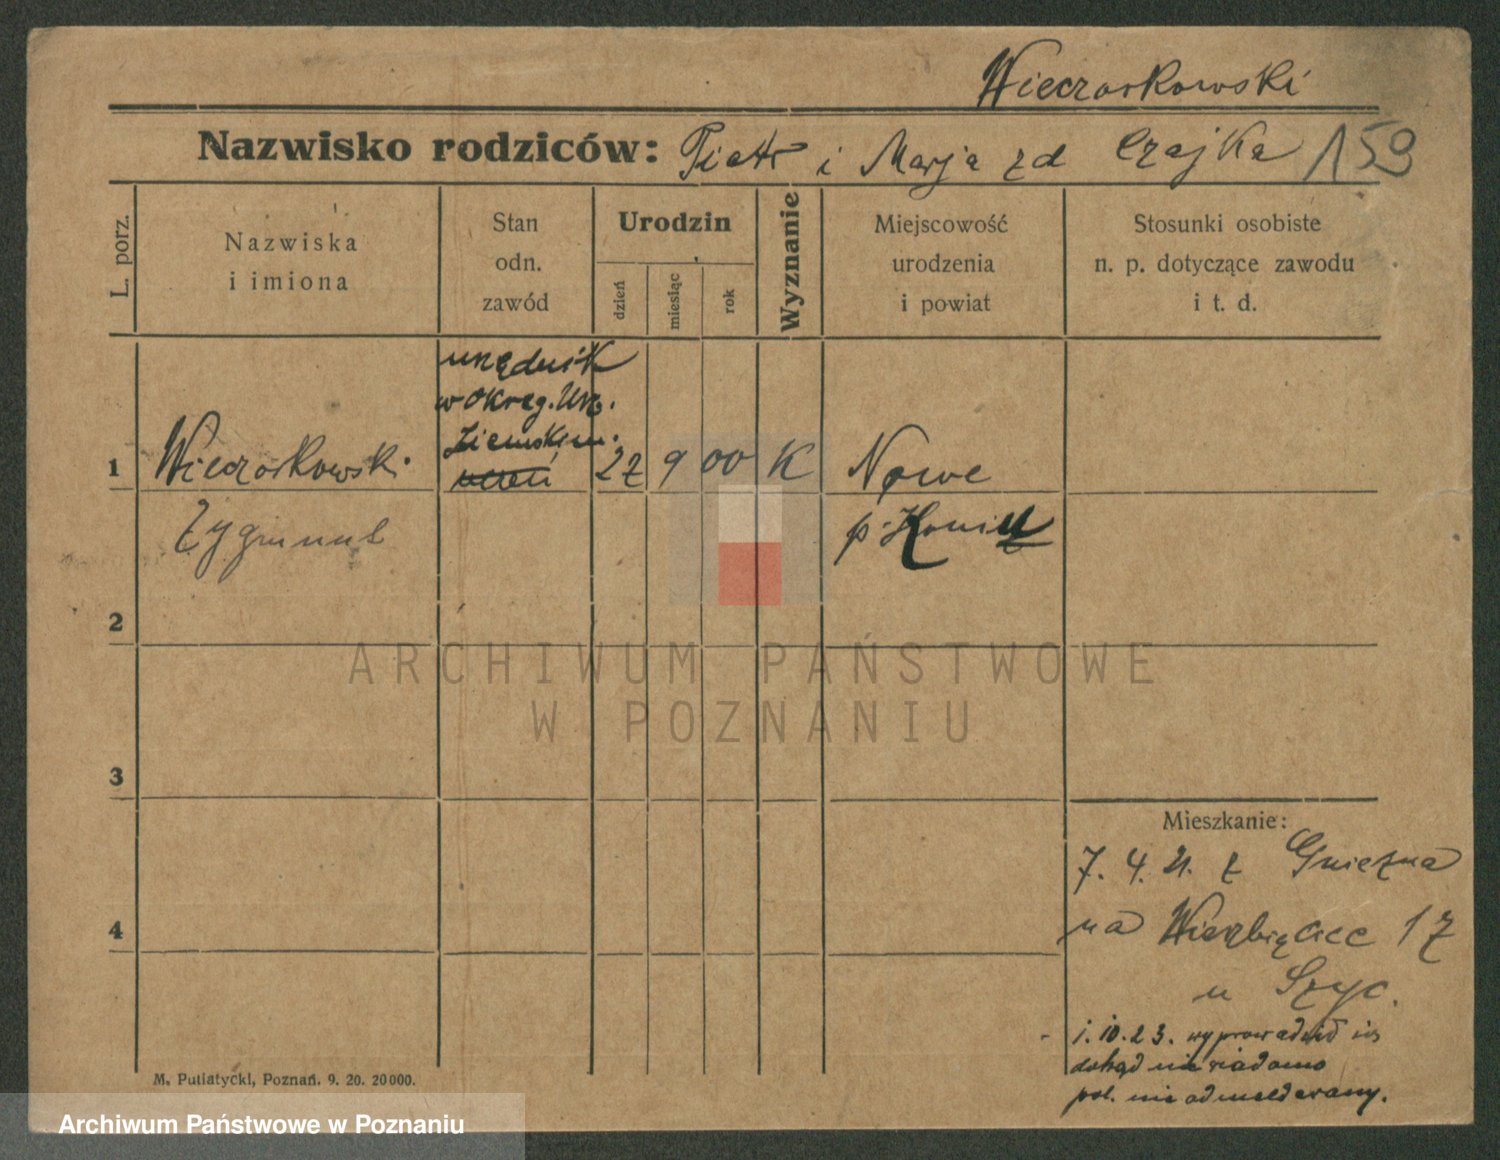 Wieczorkowski
Nazwisko rodziców: Piotr i Marja zd Czajka 159
L. porz.
Nazwiska
i imiona
Stan
odn.
zawód
Urodzin
dzień
miesiąc
rok
Wyznanie
Miejscowość
urodzenia
i powiat
Stosunki osobiste
n. p. dotyczące zawodu
i t. d.
urzędnik
w Okręg. Urz.
Ziemskim.
1 Wieczorkowski uczeń 22 9 00 K Nowe
Zygmunt p. Konin
2
ARCHIWUM PAŃSTWOWE
W POZNANIU
3
Mieszkanie:
7. 4. 21. z Gniezna
4
na Wierzbięcice 17
u Szyc.
1. 10. 23. wyprowadził się
dokąd niewiadomo
pol. nie odmeldowany.
M. Putiatycki, Poznań. 9. 20. 20000.
Archiwum Państwowe w Poznaniu